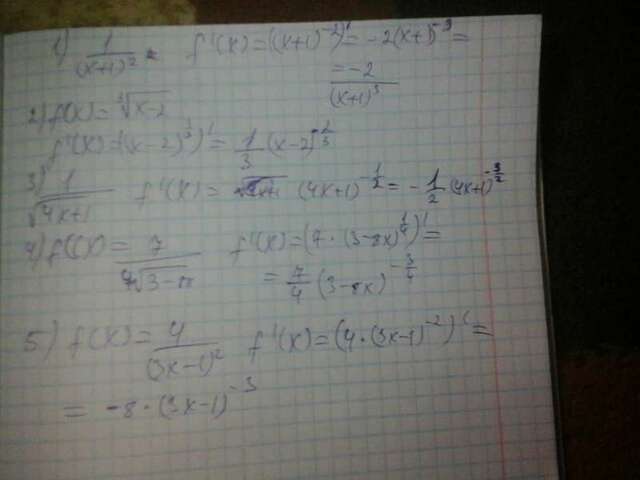 1) 1/(x+1)² = f'(x) = ((x+1)⁻²)' = -2(x+1)⁻³ =
= -2/(x+1)³
2) f(x) = ³√(x-2)
f'(x) = ((x-2)^(1/3))' = 1/3 (x-2)^(-2/3)
3) 1/√(4x+1) f'(x) = (4x+1)^(-1/2) = -1/2 (4x+1)^(-3/2)
4) f(x) = 7/⁴√(3-8x) f'(x) = (7·(3-8x)^(1/4))' =
= 7/4 (3-8x)^(-3/4)
5) f(x) = 4/(3x-1)² f'(x) = (4·(3x-1)⁻²)' =
= -8·(3x-1)⁻³